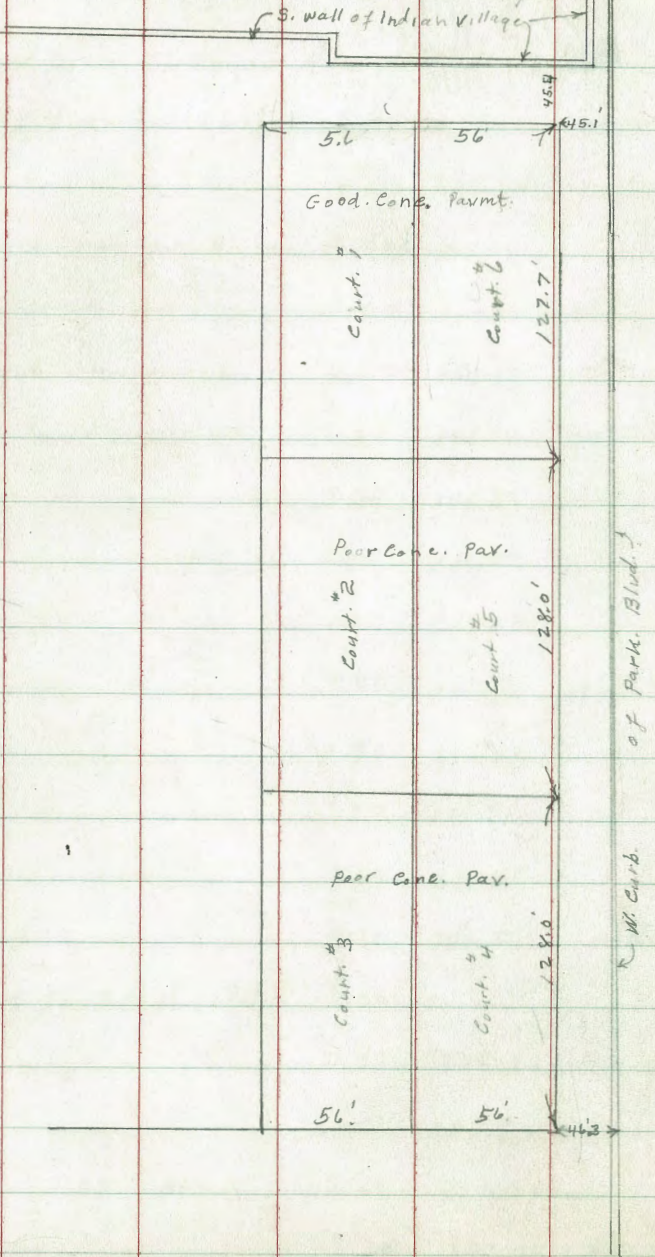 S. wall of Indian Village
45.4
45.1
56 56
Good. Conc. Pavmt.
Court. #1 Court. #6 127.7'
Poor Conc. Pav.
Court. #2 Court. #5 128.0'
Poor Conc. Pav.
Court. #3 Court. #4 128.0'
56' 56'
46.3
W. Curb. of Park. Blvd.